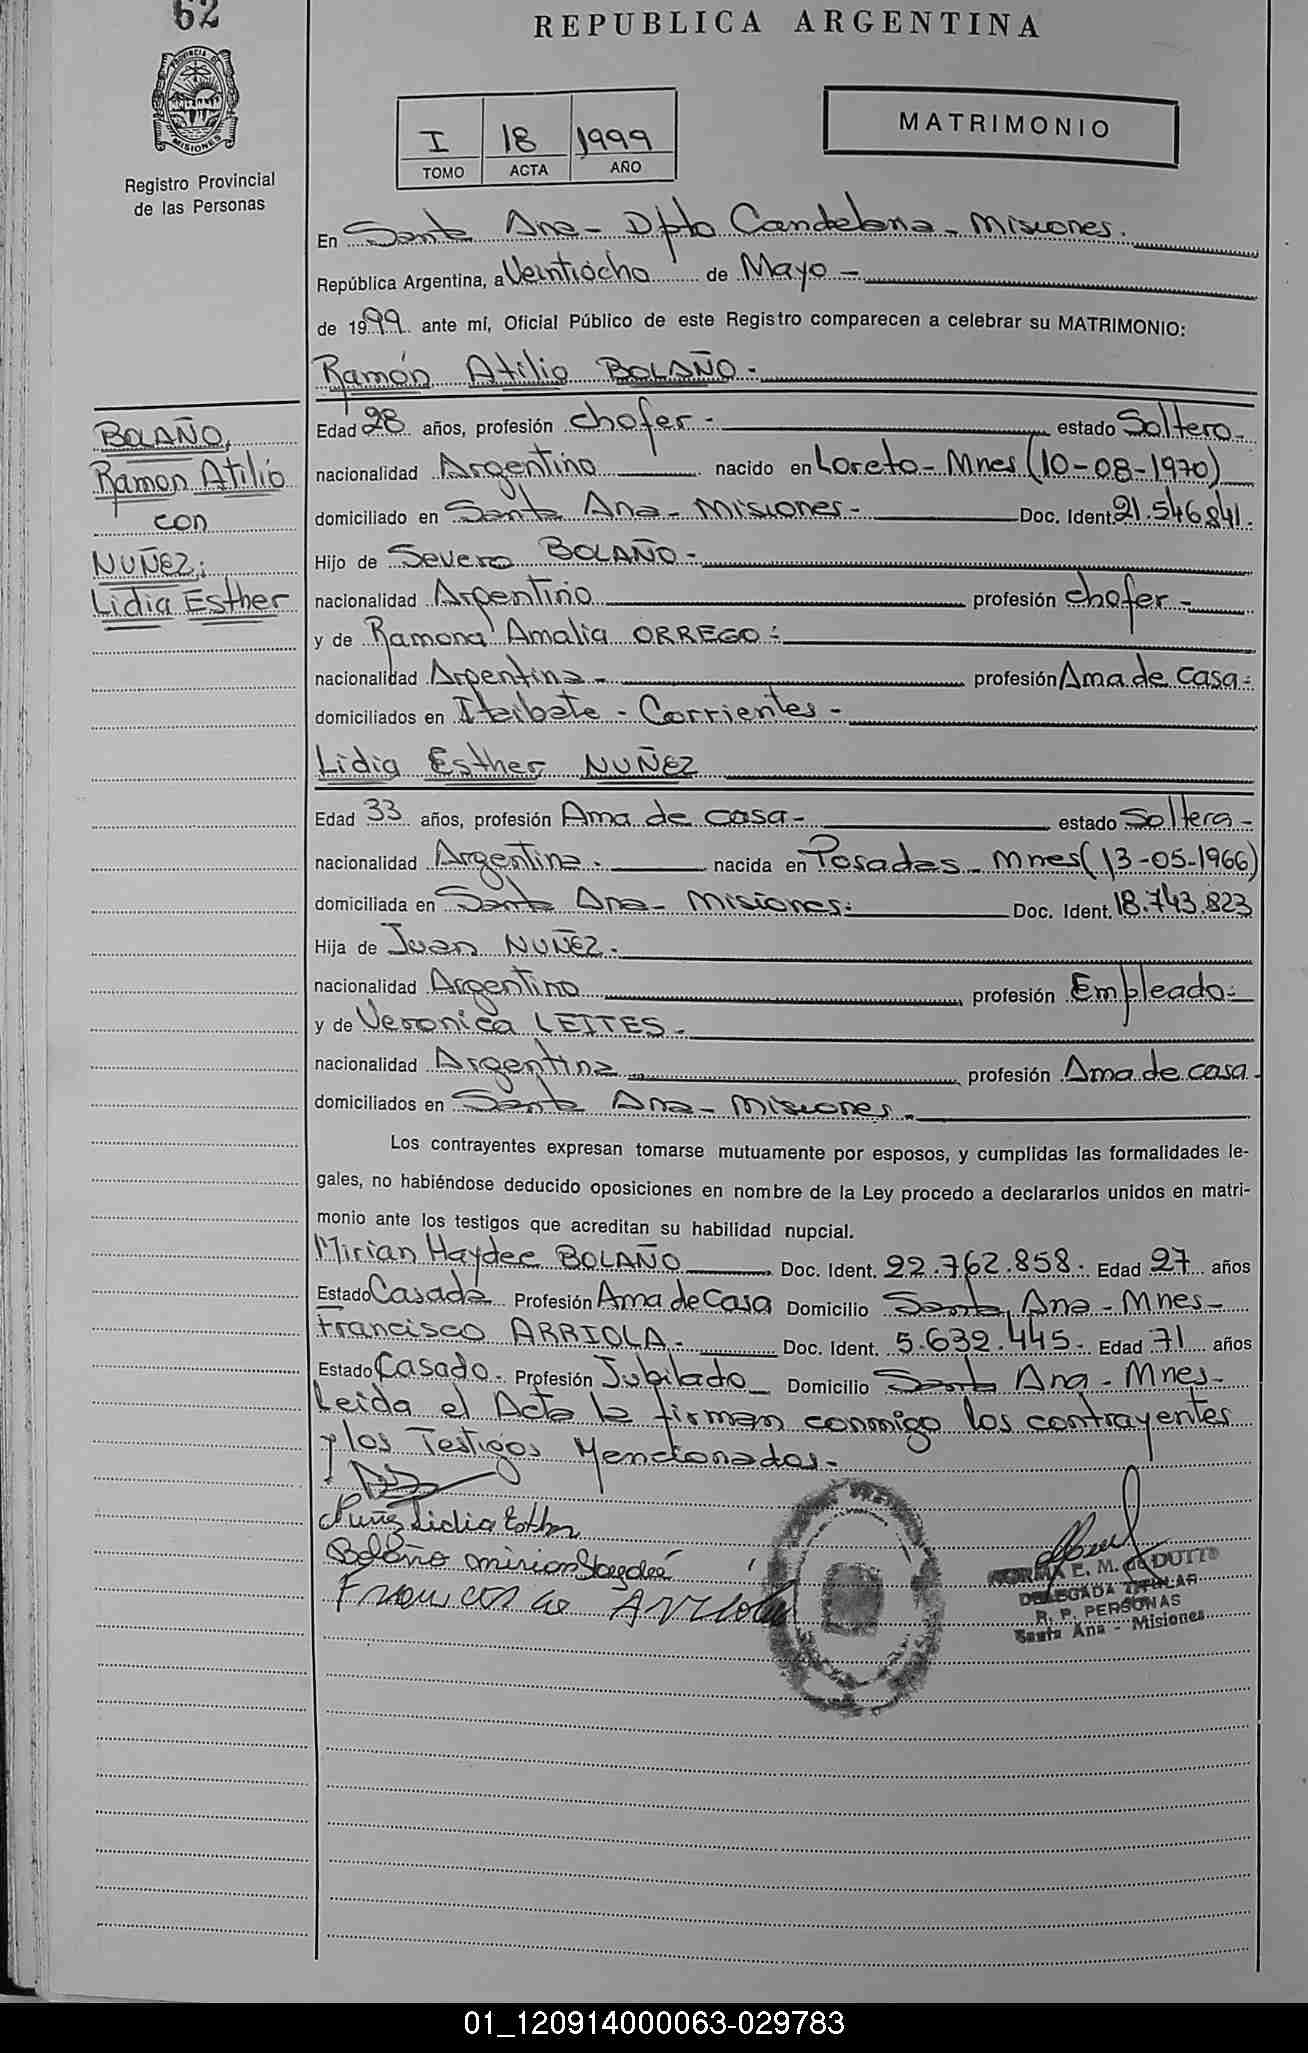 62
REPUBLICA ARGENTINA
PROVINCIA DE MISIONES
Registro Provincial
de las Personas
I 18 1999
TOMO ACTA AÑO
MATRIMONIO
En Santa Ana - Dpto Candelaria - Misiones.
República Argentina, a Veintiocho de Mayo -
de 1999 ante mí, Oficial Público de este Registro comparecen a celebrar su MATRIMONIO:
Ramón Atilio BOLAÑO -
BOLAÑO,
Ramon Atilio
con
NUÑEZ;
Lidia Esther
Edad 28 años, profesión chofer - estado Soltero -
nacionalidad Argentino nacido en Loreto - Mnes (10-08-1970)
domiciliado en Santa Ana - Misiones - Doc. Ident. 21.546.841.
Hijo de Severo BOLAÑO -
nacionalidad Argentino profesión chofer -
y de Ramona Amalia ORREGO -
nacionalidad Argentina - profesión Ama de casa -
domiciliados en Itaibate - Corrientes -
Lidia Esther NUÑEZ
Edad 33 años, profesión Ama de casa - estado Soltera -
nacionalidad Argentina - nacida en Posadas - Mnes (13-05-1966)
domiciliada en Santa Ana - Misiones. Doc. Ident. 18.743.823
Hija de Juan NUÑEZ -
nacionalidad Argentino profesión Empleado -
y de Veronica LEITES -
nacionalidad Argentina profesión Ama de casa -
domiciliados en Santa Ana - Misiones -
Los contrayentes expresan tomarse mutuamente por esposos, y cumplidas las formalidades le-
gales, no habiéndose deducido oposiciones en nombre de la Ley procedo a declararlos unidos en matri-
monio ante los testigos que acreditan su habilidad nupcial.
Mirian Haydee BOLAÑO Doc. Ident. 22.762.858. Edad 27 años
Estado Casada Profesión Ama de Casa Domicilio Santa Ana - Mnes -
Francisco ARRIOLA - Doc. Ident. 5.632.445. Edad 71 años
Estado Casado - Profesión Jubilado Domicilio Santa Ana - Mnes -
Leida el Acta la firman conmigo los contrayentes
y los Testigos Mencionados -
Nuñez Lidia Esther
Bolaño mirian Haydeé
Arriola
NORMA E. M. de DUTTO
DELEGADA TITULAR
R. P. PERSONAS
Santa Ana - Misiones
01_120914000063-029783